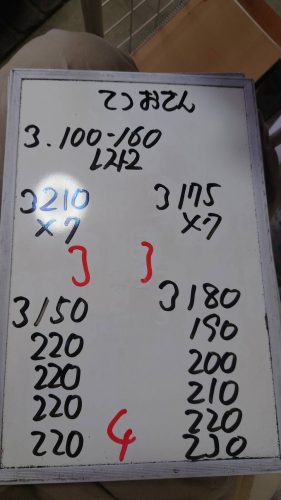 てつおてん
3.100-160
1212
3210
×7
3
3150
220
220
220
220
4
3175
×7
3
3180
190
200
210
220
230